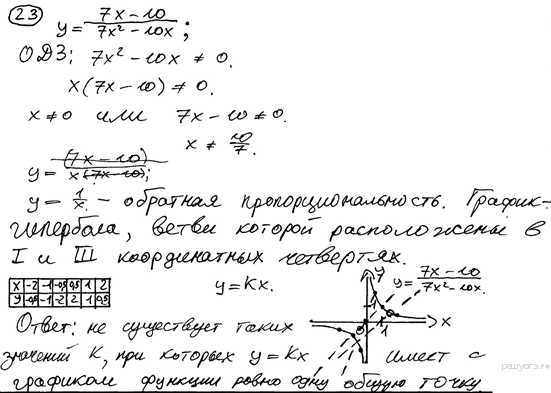 (23) y = 7x-10 / 7x²-10x ;
ОДЗ: 7x² - 10x ≠ 0.
x(7x-10) ≠ 0.
x ≠ 0 или 7x-10 ≠ 0.
x ≠ 10/7.
y = (7x-10) / x(7x-10) ;
y = 1/x. – обратная пропорциональность. График-
гипербола, ветви которой расположены в
I и III координатных четвертях.
x -2 -1 -0,5 0,5 1 2
y -0,5 -1 -2 2 1 0,5
y = kx.
y
y = 7x-10 / 7x²-10x.
1
0
1
x
Ответ: не существует таких
значений k, при которых y = kx имеет с
графиком функции ровно одну общую точку.
решуогэ.рф